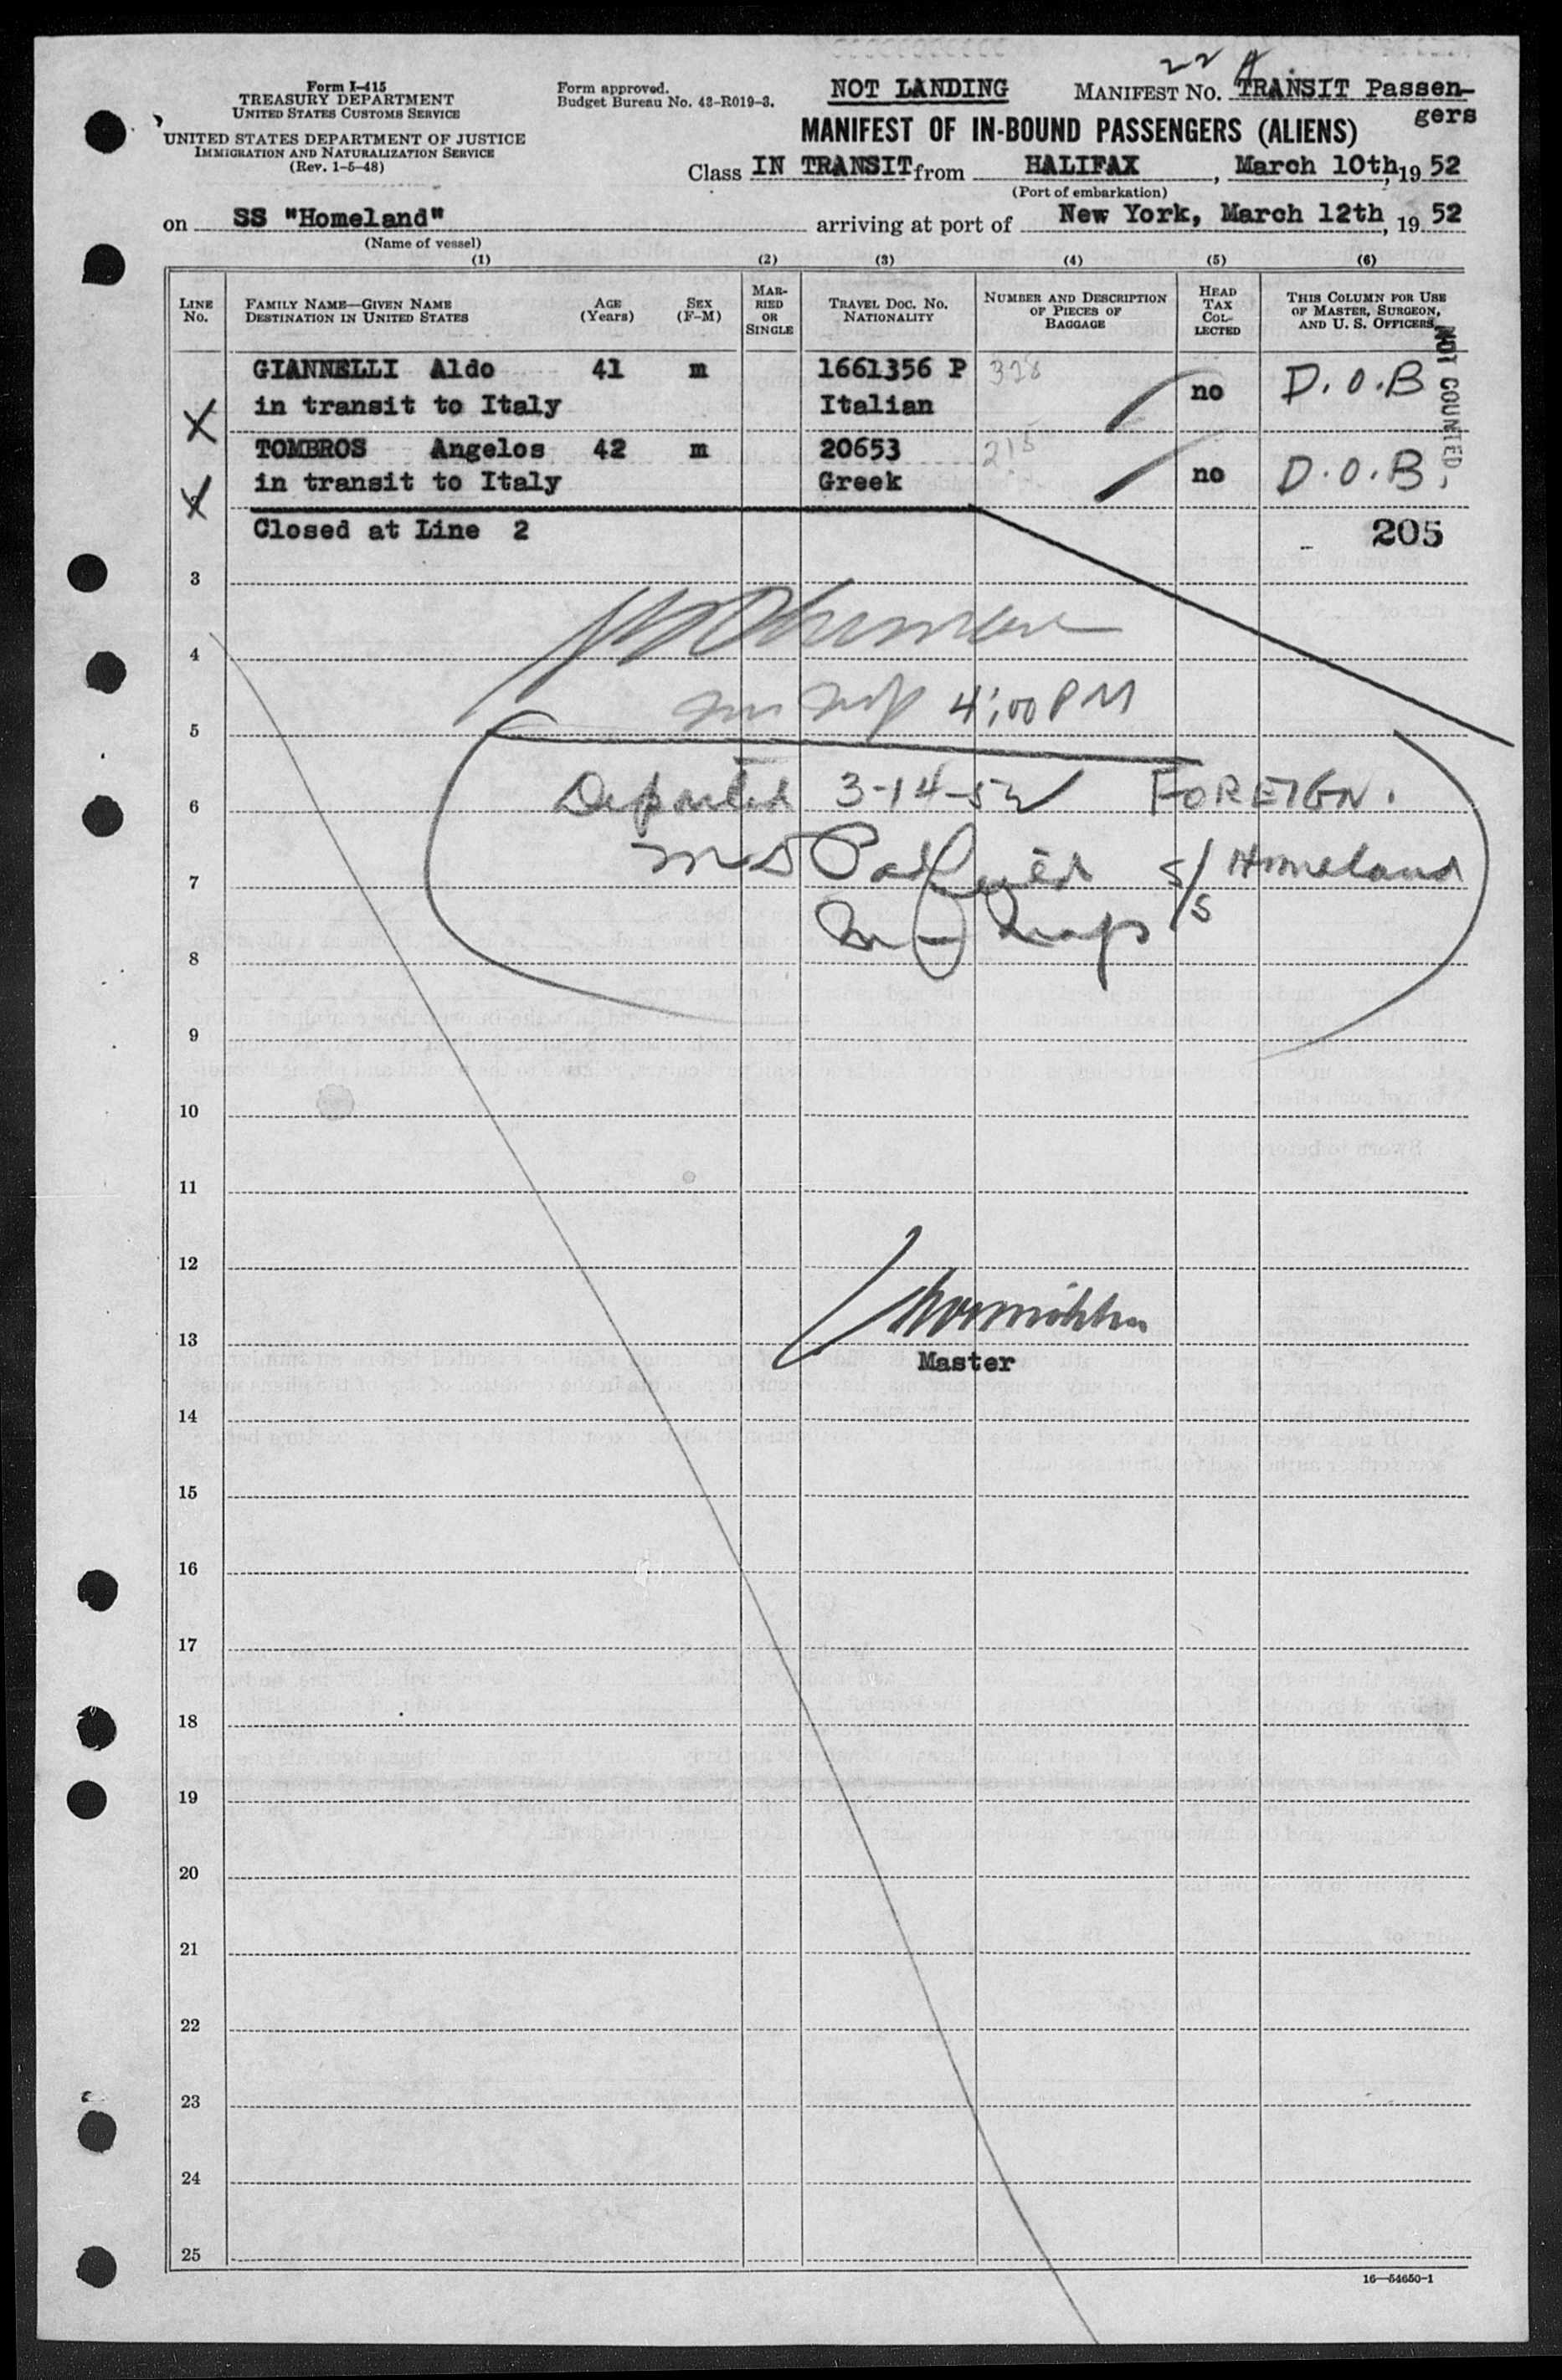 22 A
Form I-415
TREASURY DEPARTMENT
UNITED STATES CUSTOMS SERVICE
UNITED STATES DEPARTMENT OF JUSTICE
IMMIGRATION AND NATURALIZATION SERVICE
(Rev. 1-5-48)
Form approved.
Budget Bureau No. 43-R019-3.
NOT LANDING
MANIFEST NO. TRANSIT Passen-
gers
MANIFEST OF IN-BOUND PASSENGERS (ALIENS)
Class IN TRANSIT from HALIFAX, March 10th, 19 52
(Port of embarkation)
on SS "Homeland" arriving at port of New York, March 12th, 19 52
(Name of vessel)
(1) (2) (3) (4) (5) (6)
LINE No.
FAMILY NAME—GIVEN NAME
DESTINATION IN UNITED STATES
AGE (Years)
SEX (F-M)
MARRIED OR SINGLE
TRAVEL DOC. NO.
NATIONALITY
NUMBER AND DESCRIPTION
OF PIECES OF
BAGGAGE
HEAD TAX COLLECTED
THIS COLUMN FOR USE
OF MASTER, SURGEON,
AND U. S. OFFICERS
NOT COUNTED
GIANNELLI Aldo 41 m 1661356 P 328
X in transit to Italy Italian no D.O.B
TOMBROS Angelos 42 m 20653 215
X in transit to Italy Greek no D.O.B.
Closed at Line 2 205
3
4
4:00 PM
5
Departed 3-14-52 FOREIGN.
6
S/S Homeland
7
8
9
10
11
12
13
Master
14
15
16
17
18
19
20
21
22
23
24
25
16—54650-1